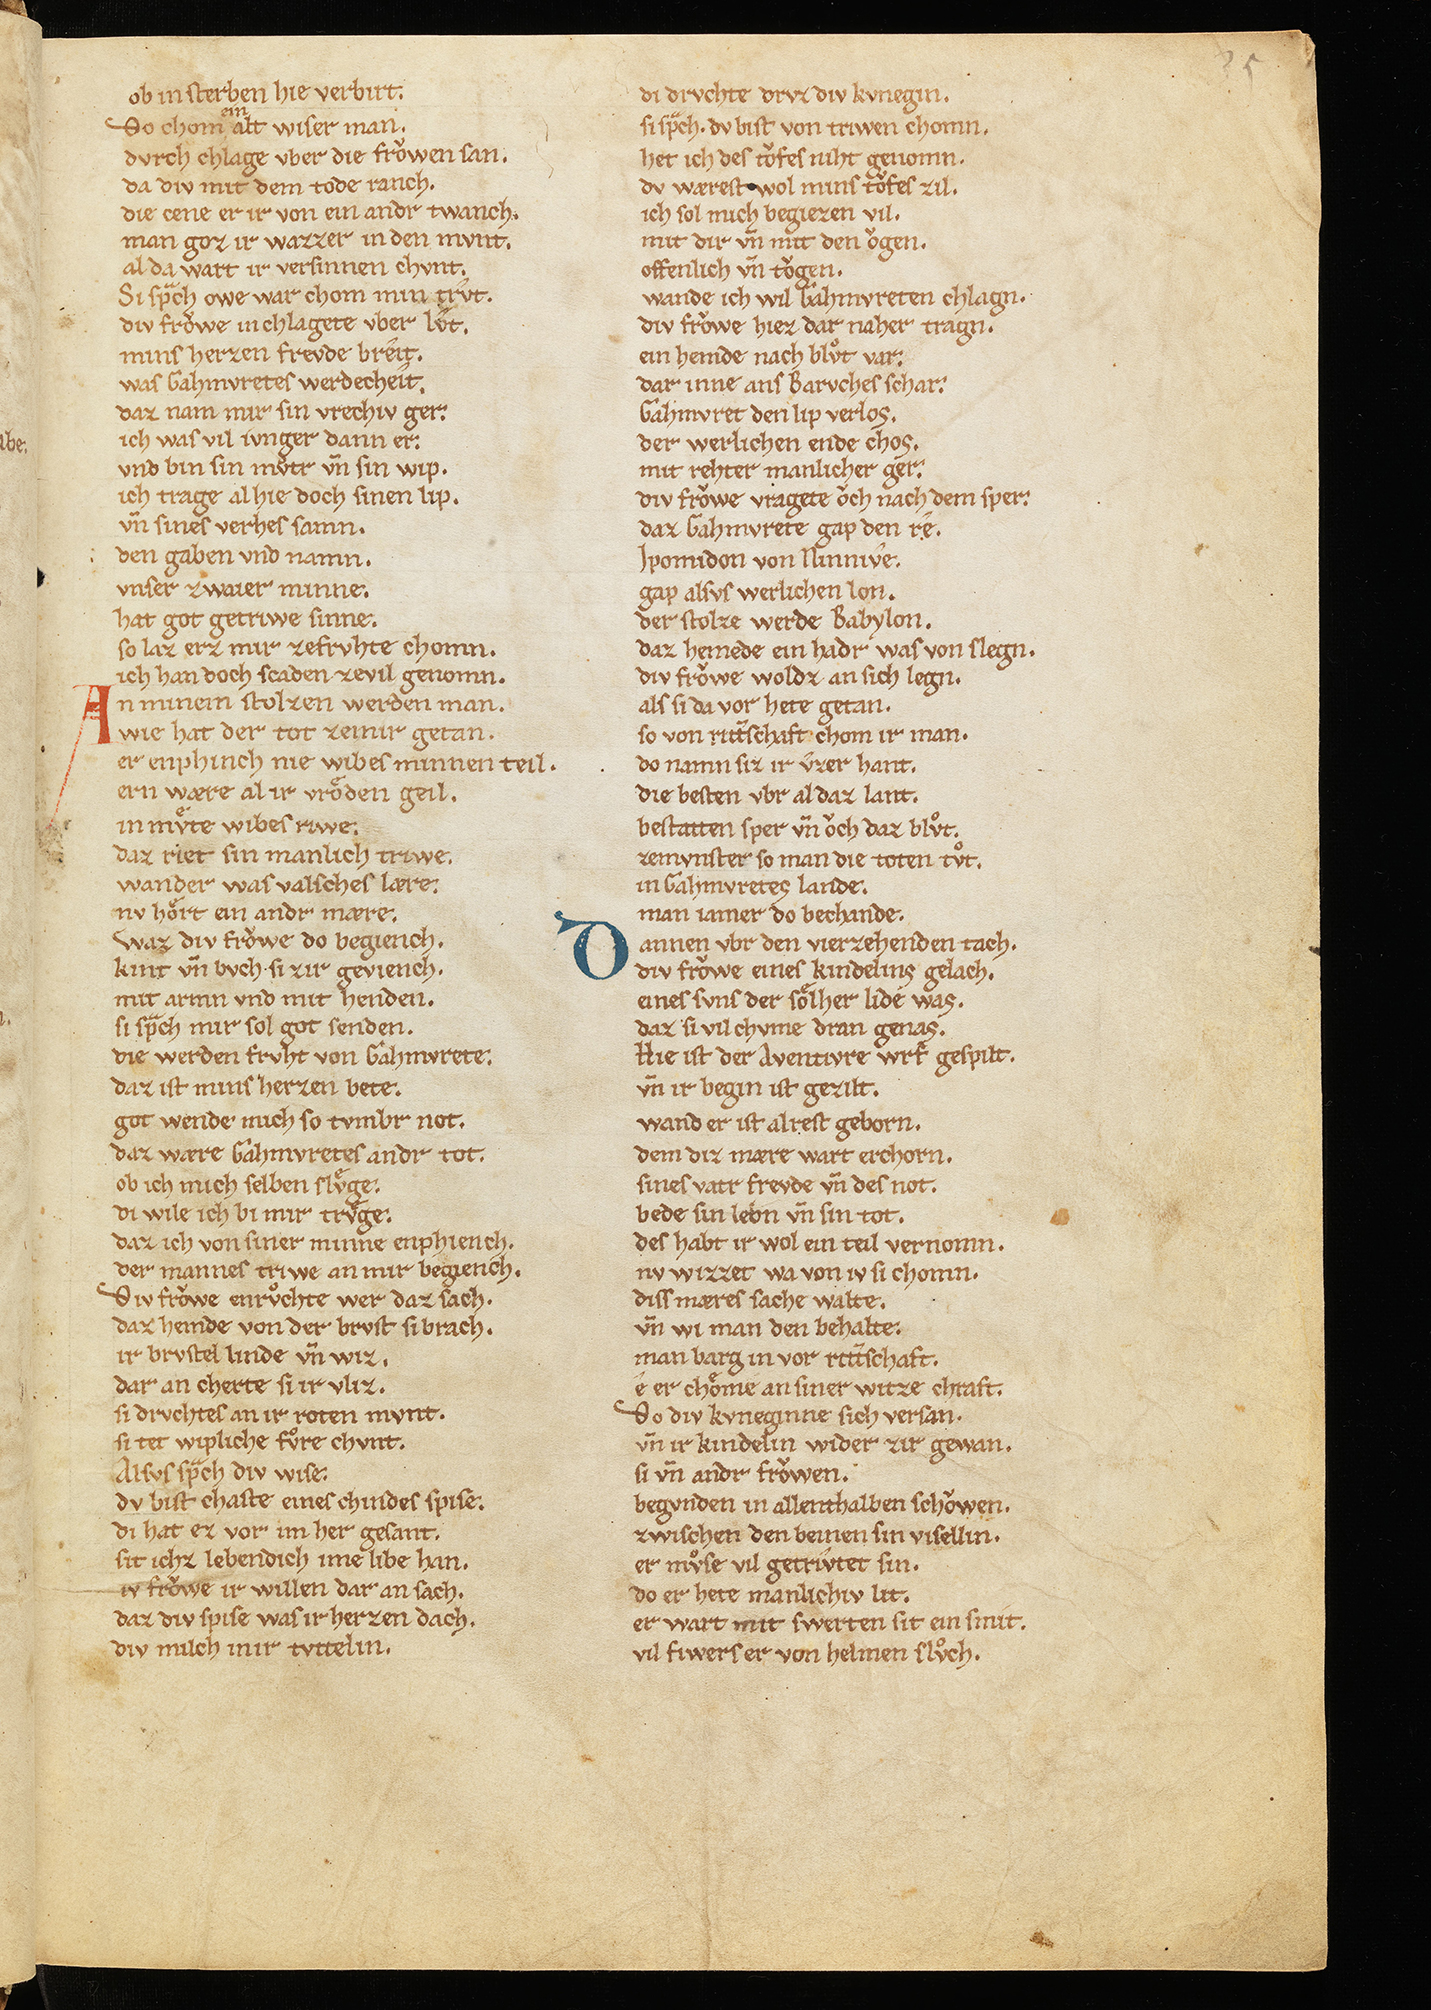 ob in sterben hie verbirt.
So chom ein alt wiser man.
dvrch chlage vber die frǒwen san.
da div mit dem tode ranch.
die cene er ir von ein andr twanch.
man goz ir wazzer in den mvnt.
al da wart ir versinnen chvnt.
Si sp̄ch owe war chom min trv̂t.
div frǒwe in chlagete vber lv̂t.
mins herzen frevde breit.
was Gahmvretes werdecheit.
daz nam mir sin vrechiv ger.
ich was vil ivnger dann er.
vnd bin sin mv̊tr vn̄ sin wip.
ich trage al hie doch sinen lip.
vn̄ sines verhes samn.
den gaben vnd namn.
vnser zwaier minne.
hat got getriwe sinne.
so laz erz mir zefrvhte chomn.
ich han doch scaden zevil genomn.
An minem stolzen werden man.
wie hat der tot zemir getan.
er enphinch nie wibes minnen teil.
ern wære al ir vrǒden geil.
in mv̊te wibes riwe.
daz riet sin manlich triwe.
wander was valsches lære.
nv hört ein andr mære.
waz div frǒwe do begiench.
kint vn̄ bvch si zir geviench.
mit armn vnd mit henden.
si sp̄ch mir sol got senden.
die werden frvht von Gahmvrete.
daz ist mins herzen bete.
got wende mich so tvmbr not.
daz wære Gahmvretes andr tot.
ob ich mich selben slv̊ge.
di wile ich bi mir trv̊ge.
daz ich von siner minne enphiench.
der mannes triwe an mir begiench.
Div frǒwe enrv̊chte wer daz sach.
daz hemde von der brvst si brach.
ir brvstel linde vn̄ wiz.
dar an cherte si ir vliz.
si drvchtes an ir roten mvnt.
si tet wipliche fv̊re chvnt.
Alsvs sp̄ch div wise.
dv bist chaste eines chindes spise.
di hat ez vor im her gesant.
sit ichz lebendich ime libe han.
iv frǒwe ir willen dar an sach.
daz div spise was ir herzen dach.
div milch in ir tvttelin.
di drvchte drvz div kvnegin.
si sp̄ch. dv bist von triwen chomn.
het ich des tǒfes niht genomn.
dv wærest wol mins tǒfes zil.
ich sol mich begiezen vil.
mit dir vn̄ mit den ǒgen.
offenlich vn̄ tǒgen.
wande ich wil Gahmvreten chlagn.
div frǒwe hiez dar naher tragn.
ein hemde nach blv̊t var.
dar inne ans Barvches schar.
Gahmvret den lip verlos.
der werlichen ende chos.
mit rehter manlicher ger.
div frǒwe vragete ǒch nach dem sper.
daz Gahmvrete gap den re.
Ipomidon von Ninnive.
gap alsvs werlichen lon.
der stolze werde Babylon.
daz hemede ein hadr was von slegn.
div frǒwe woldz an sich legn.
als si da vor hete getan.
so von rittſchaft chom ir man.
do namn siz ir v̂zer hant.
die besten vbr al daz lant.
bestatten sper vn̄ ǒch daz blv̊t.
zemvnster so man die toten tv̊t.
in Gahmvretes lande.
man iamer do bechande.
Dannen vbr den vierzehenden tach.
div frǒwe eines kindelins gelach.
eines svns der sölher lide was.
daz si vil chvme dran genas.
Hie ist der Aventivre wrf gespilt.
vn̄ ir begin ist gezilt.
wand er ist alrest geborn.
dem diz mære wart erchorn.
sines vatr frevde vn̄ des not.
bede sin lebn vn̄ sin tot.
des habt ir wol ein teil vernomn.
nv wizzet wa von iv si chomn.
diss mæres sache walte.
vn̄ wi man den behalte.
man barg in vor rittschaft.
e er chöme an siner witze chraft.
Do div kvneginne sich versan.
vn̄ ir kindelin wider zir gewan.
si vn̄ andr frǒwen.
begvnden in allenthalben schǒwen.
zwischen den beinen sin visellin.
er mv̊se vil getrivtet sin.
do er hete manlichiv lit.
er wart mit swerten sit ein smit.
vil fiwers er von helmen slv̊ch.